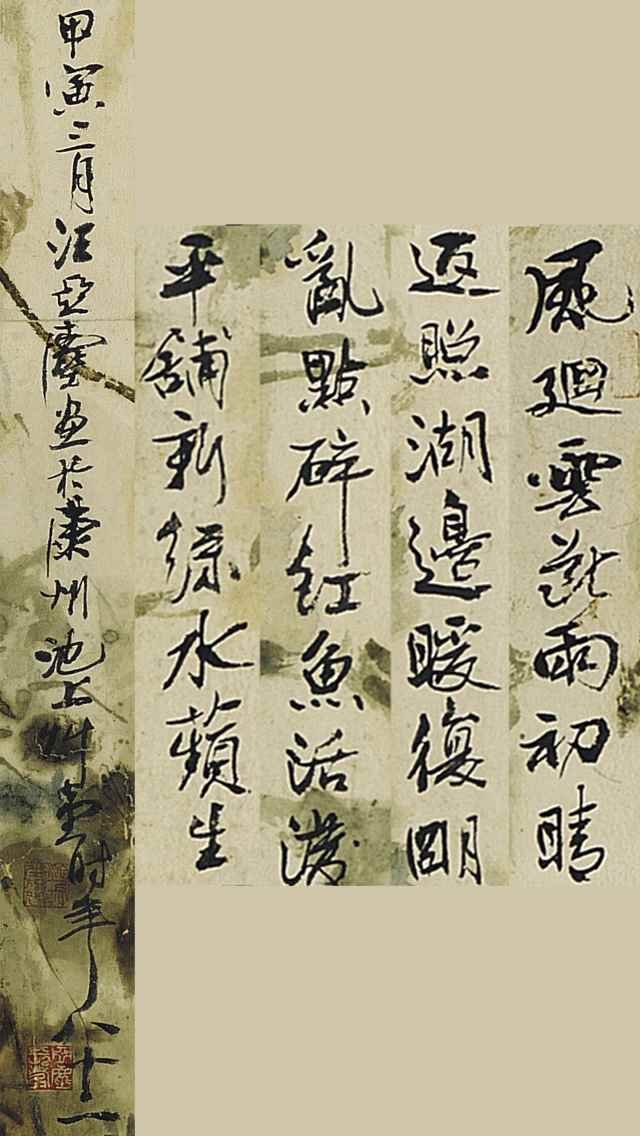 風迴雲斷雨初晴
返照湖邊暖復朙
亂點碎紅魚活潑
平舖新綠水蘋生
甲寅三月汪亞塵畫於康州池上艸堂時年八十一